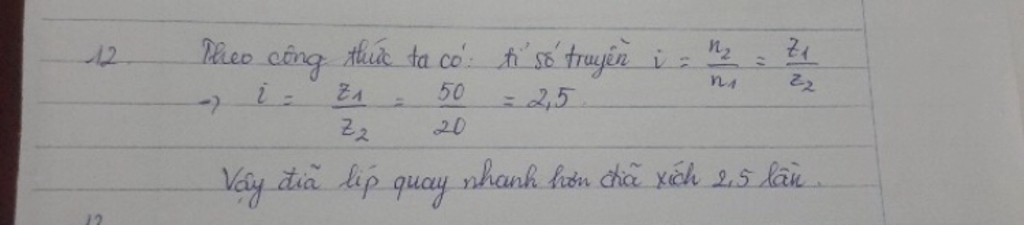 12. Theo công thức ta có: tỉ số truyền i = n2/n1 = Z1/Z2
→ i = Z1/Z2 = 50/20 = 2,5.
Vậy đĩa líp quay nhanh hơn đĩa xích 2,5 lần.